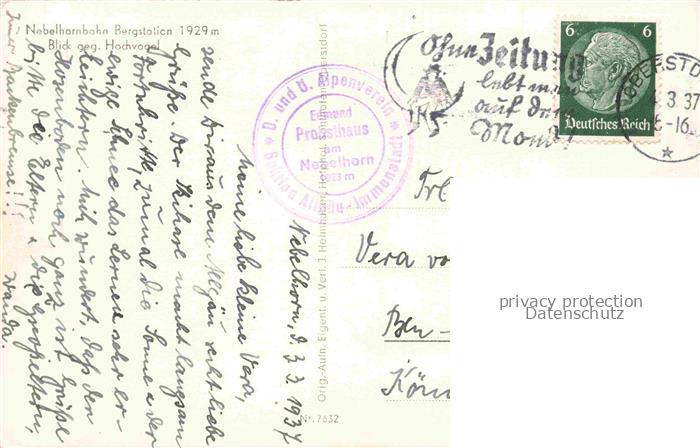 Nebelhornbahn Bergstation 1929 m
Blick geg. Hochvogel
Ohne Zeitung
lebt man
auf dem
Mond!
6 6
Deutsches Reich
OBERSTD
3.37
-16
D. und Ö. Alpenverein
Edmund
Probsthaus
am
Nebelhorn
1923 m
Sektion Allgäu-Immenstadt
Orig.-Aufn. Eigent. u. Verl. J. Heimhuber, Hofphot., Sonthofen-Oberstdorf
Nr. 7632
Nebelhorn, d. 3.3.1937
Meine liebe kleine Vera,
sende Dir aus dem Allgäu recht liebe
Grüße. Der Skihase macht langsam
Fortschritte, zumal die Sonne u. der
ewige Schnee das Lernen sehr er-
leichtern. Mich wundert, daß den
noch ganz ist. Grüße
bitte die Eltern u. die Großeltern,
Wanda.
Frl
Vera vo
Ben-
Kön
privacy protection
Datenschutz